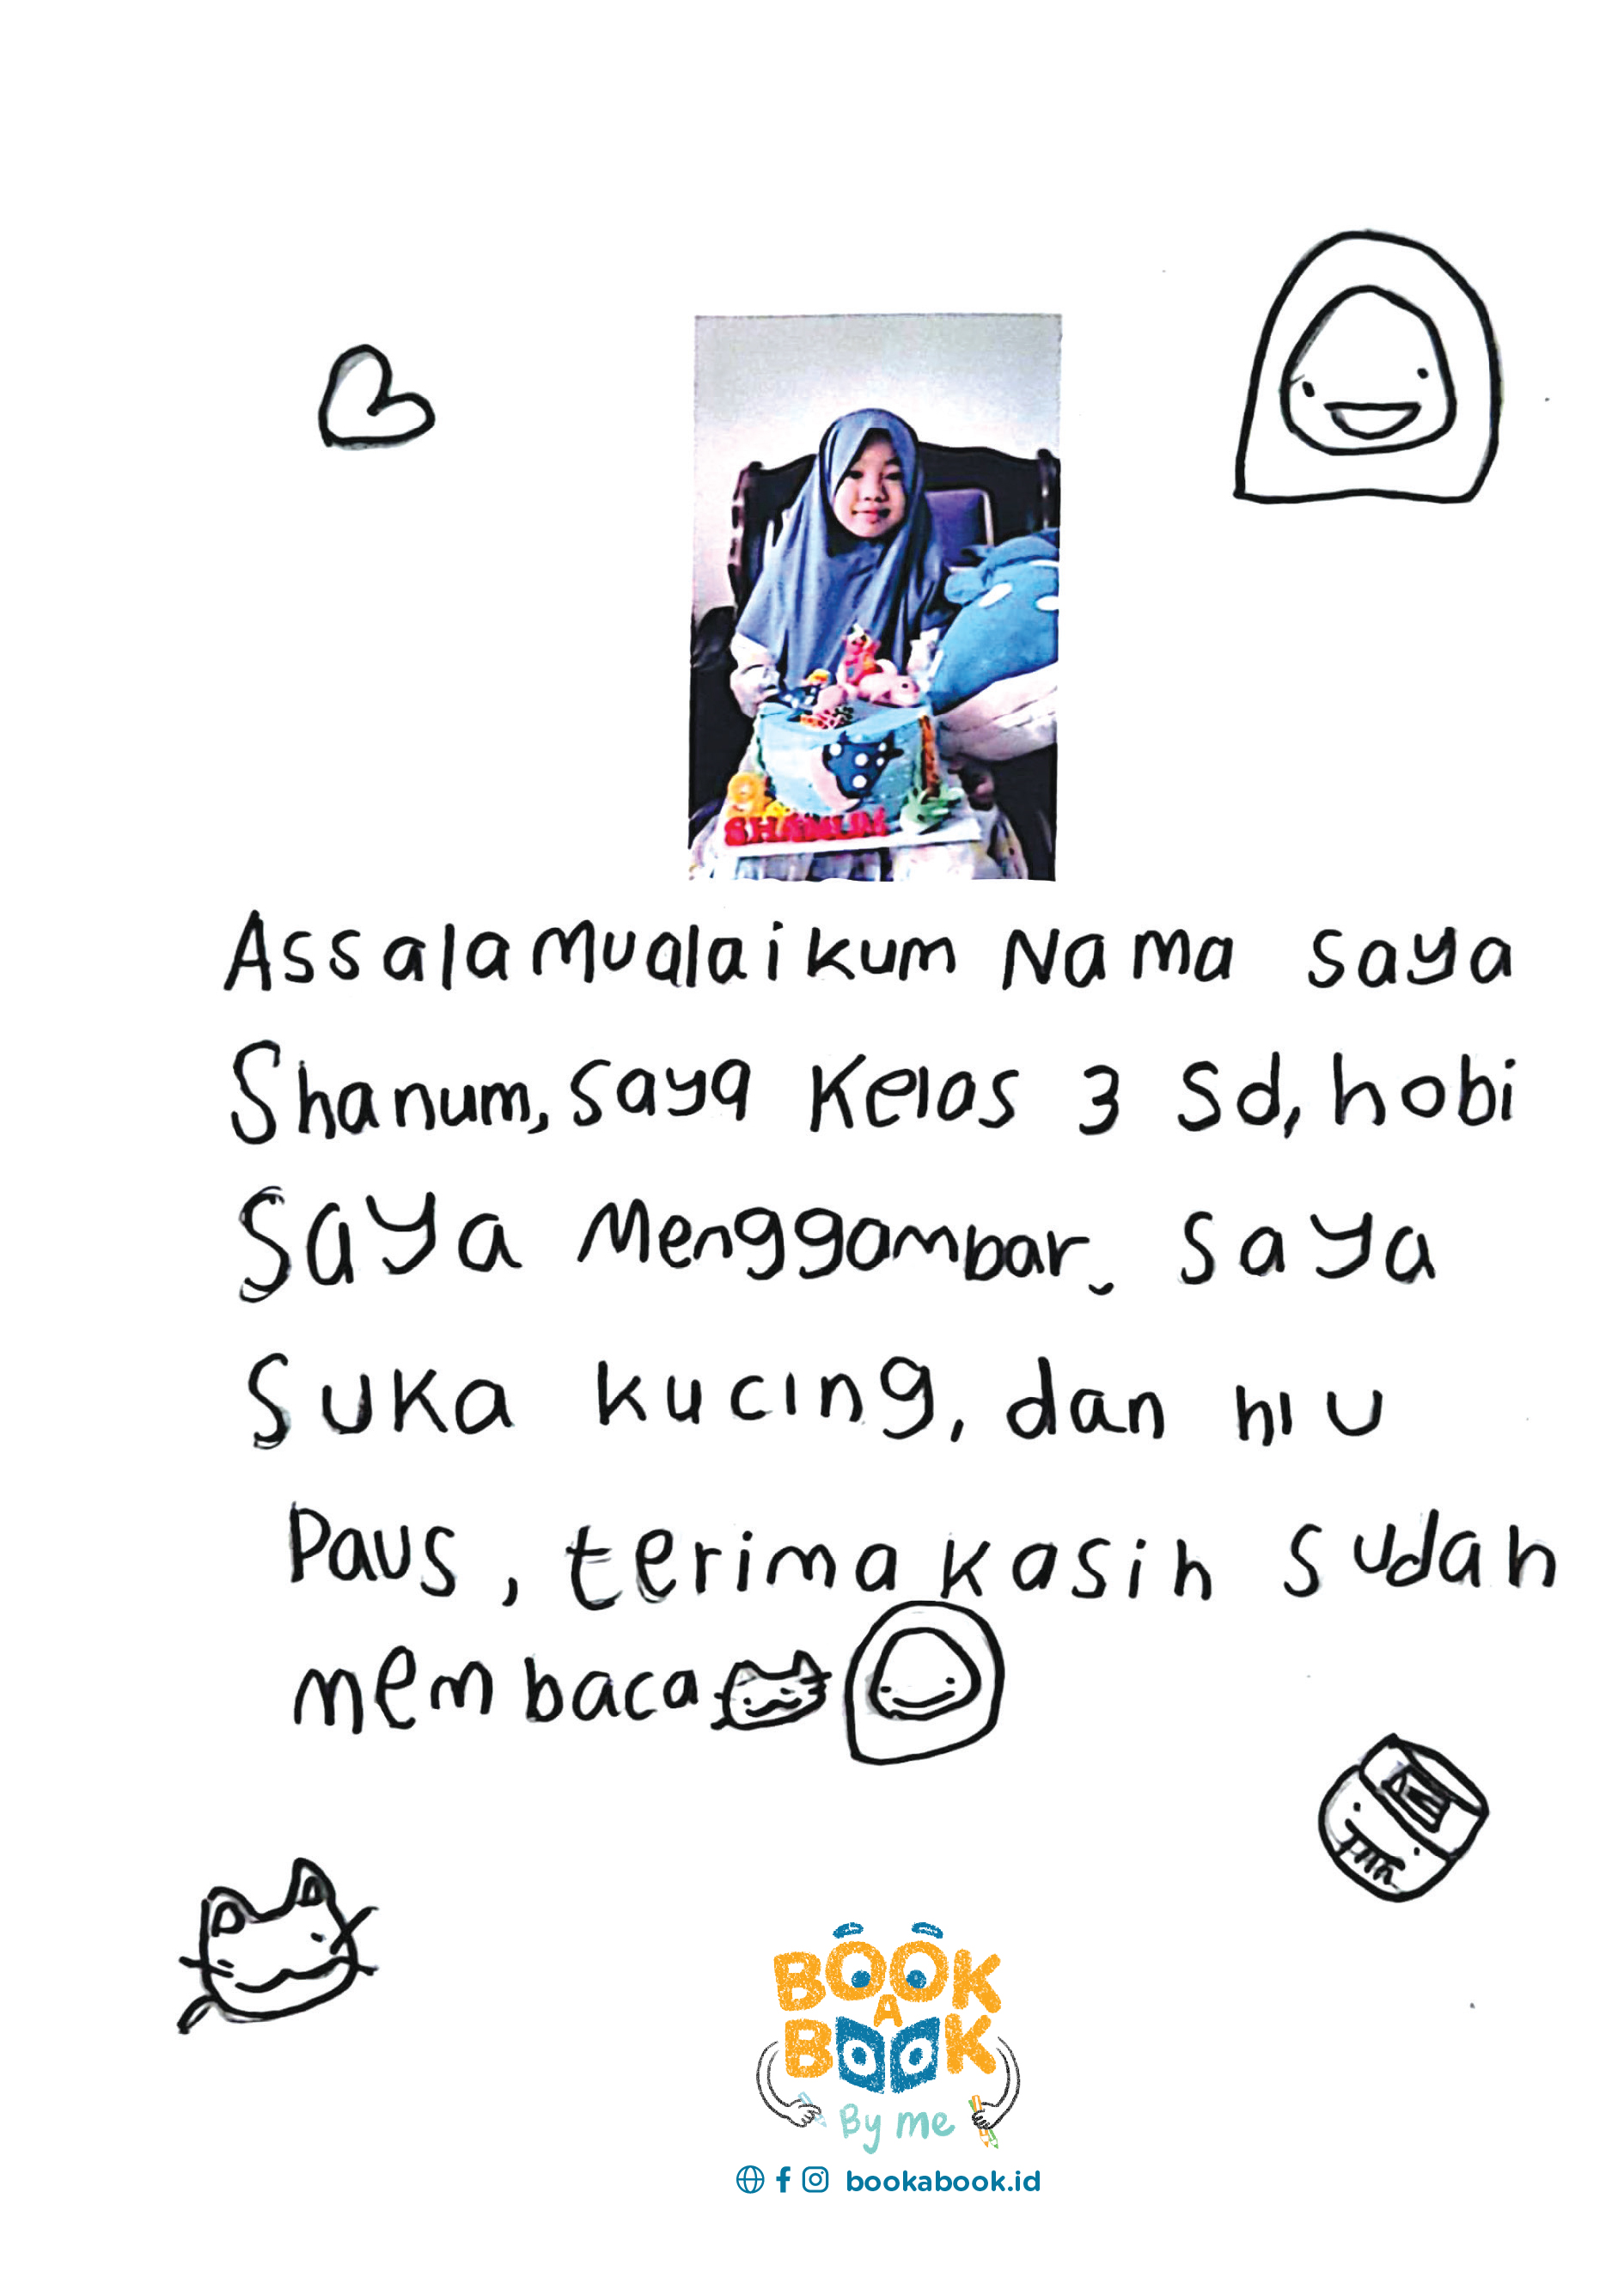 9
SHANUM
Assalamualaikum Nama saya
Shanum, saya Kelas 3 Sd, hobi
Saya Menggambar, saya
Suka kucing, dan hiu
Paus, terima kasih sudah
membaca
BOOK
A
BOOK
By me
bookabook.id